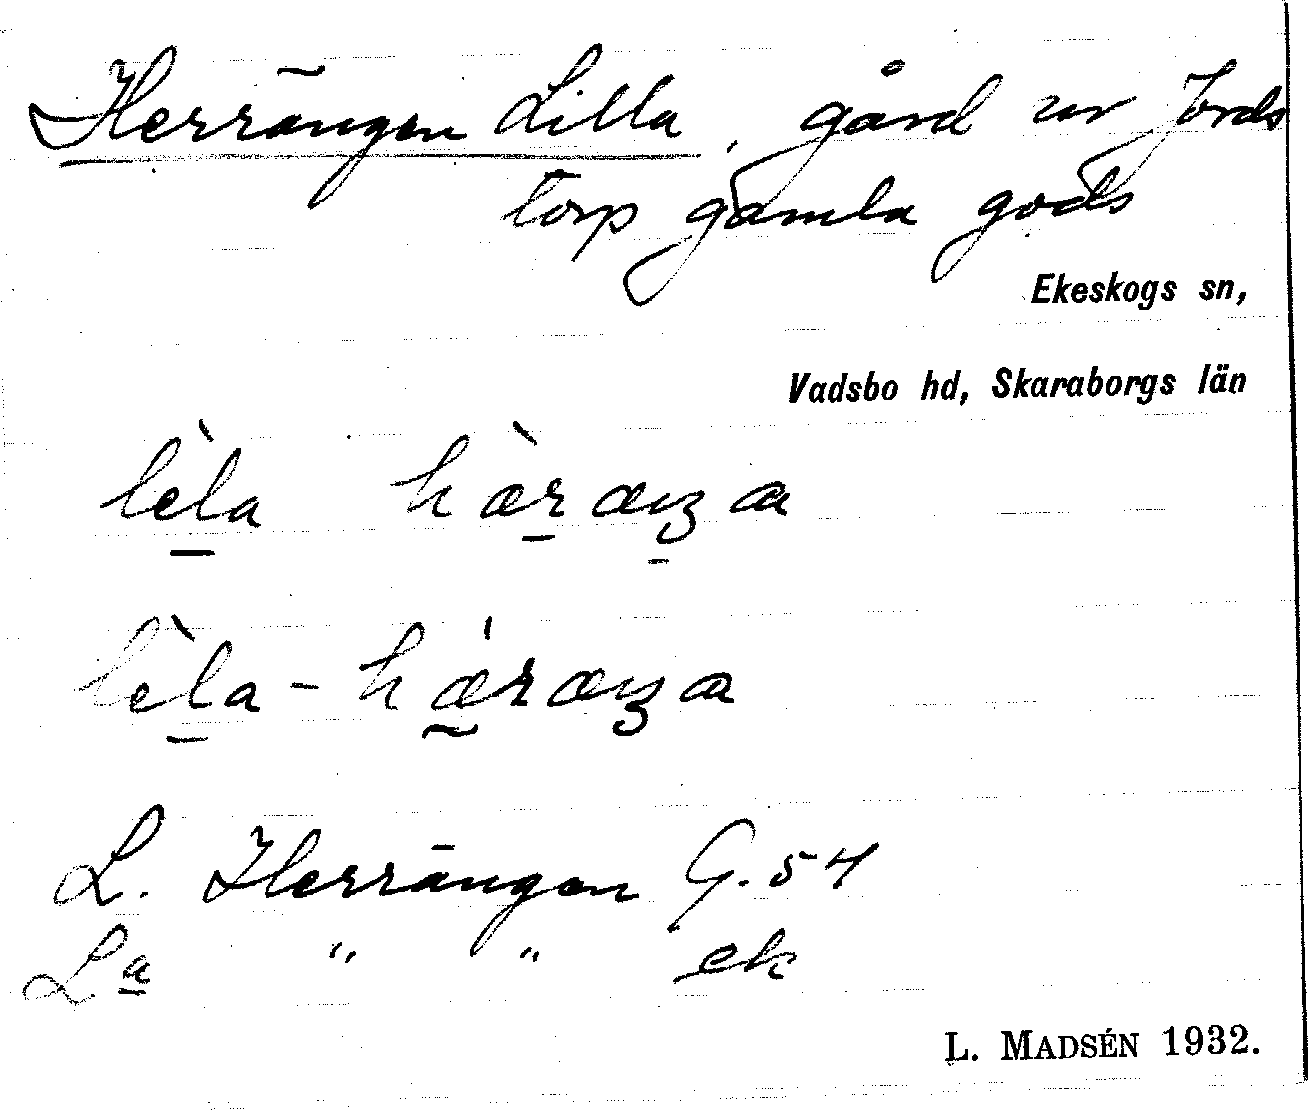 Herrängen Lilla, gård ur Jords
torp gamla gods
Ekeskogs sn,
Vadsbo hd, Skaraborgs län
lèla hæ̀ræŋa
lèla-hǽræŋa
L. Herrängen G. 54
La " " ek
L. MADSÉN 1932.